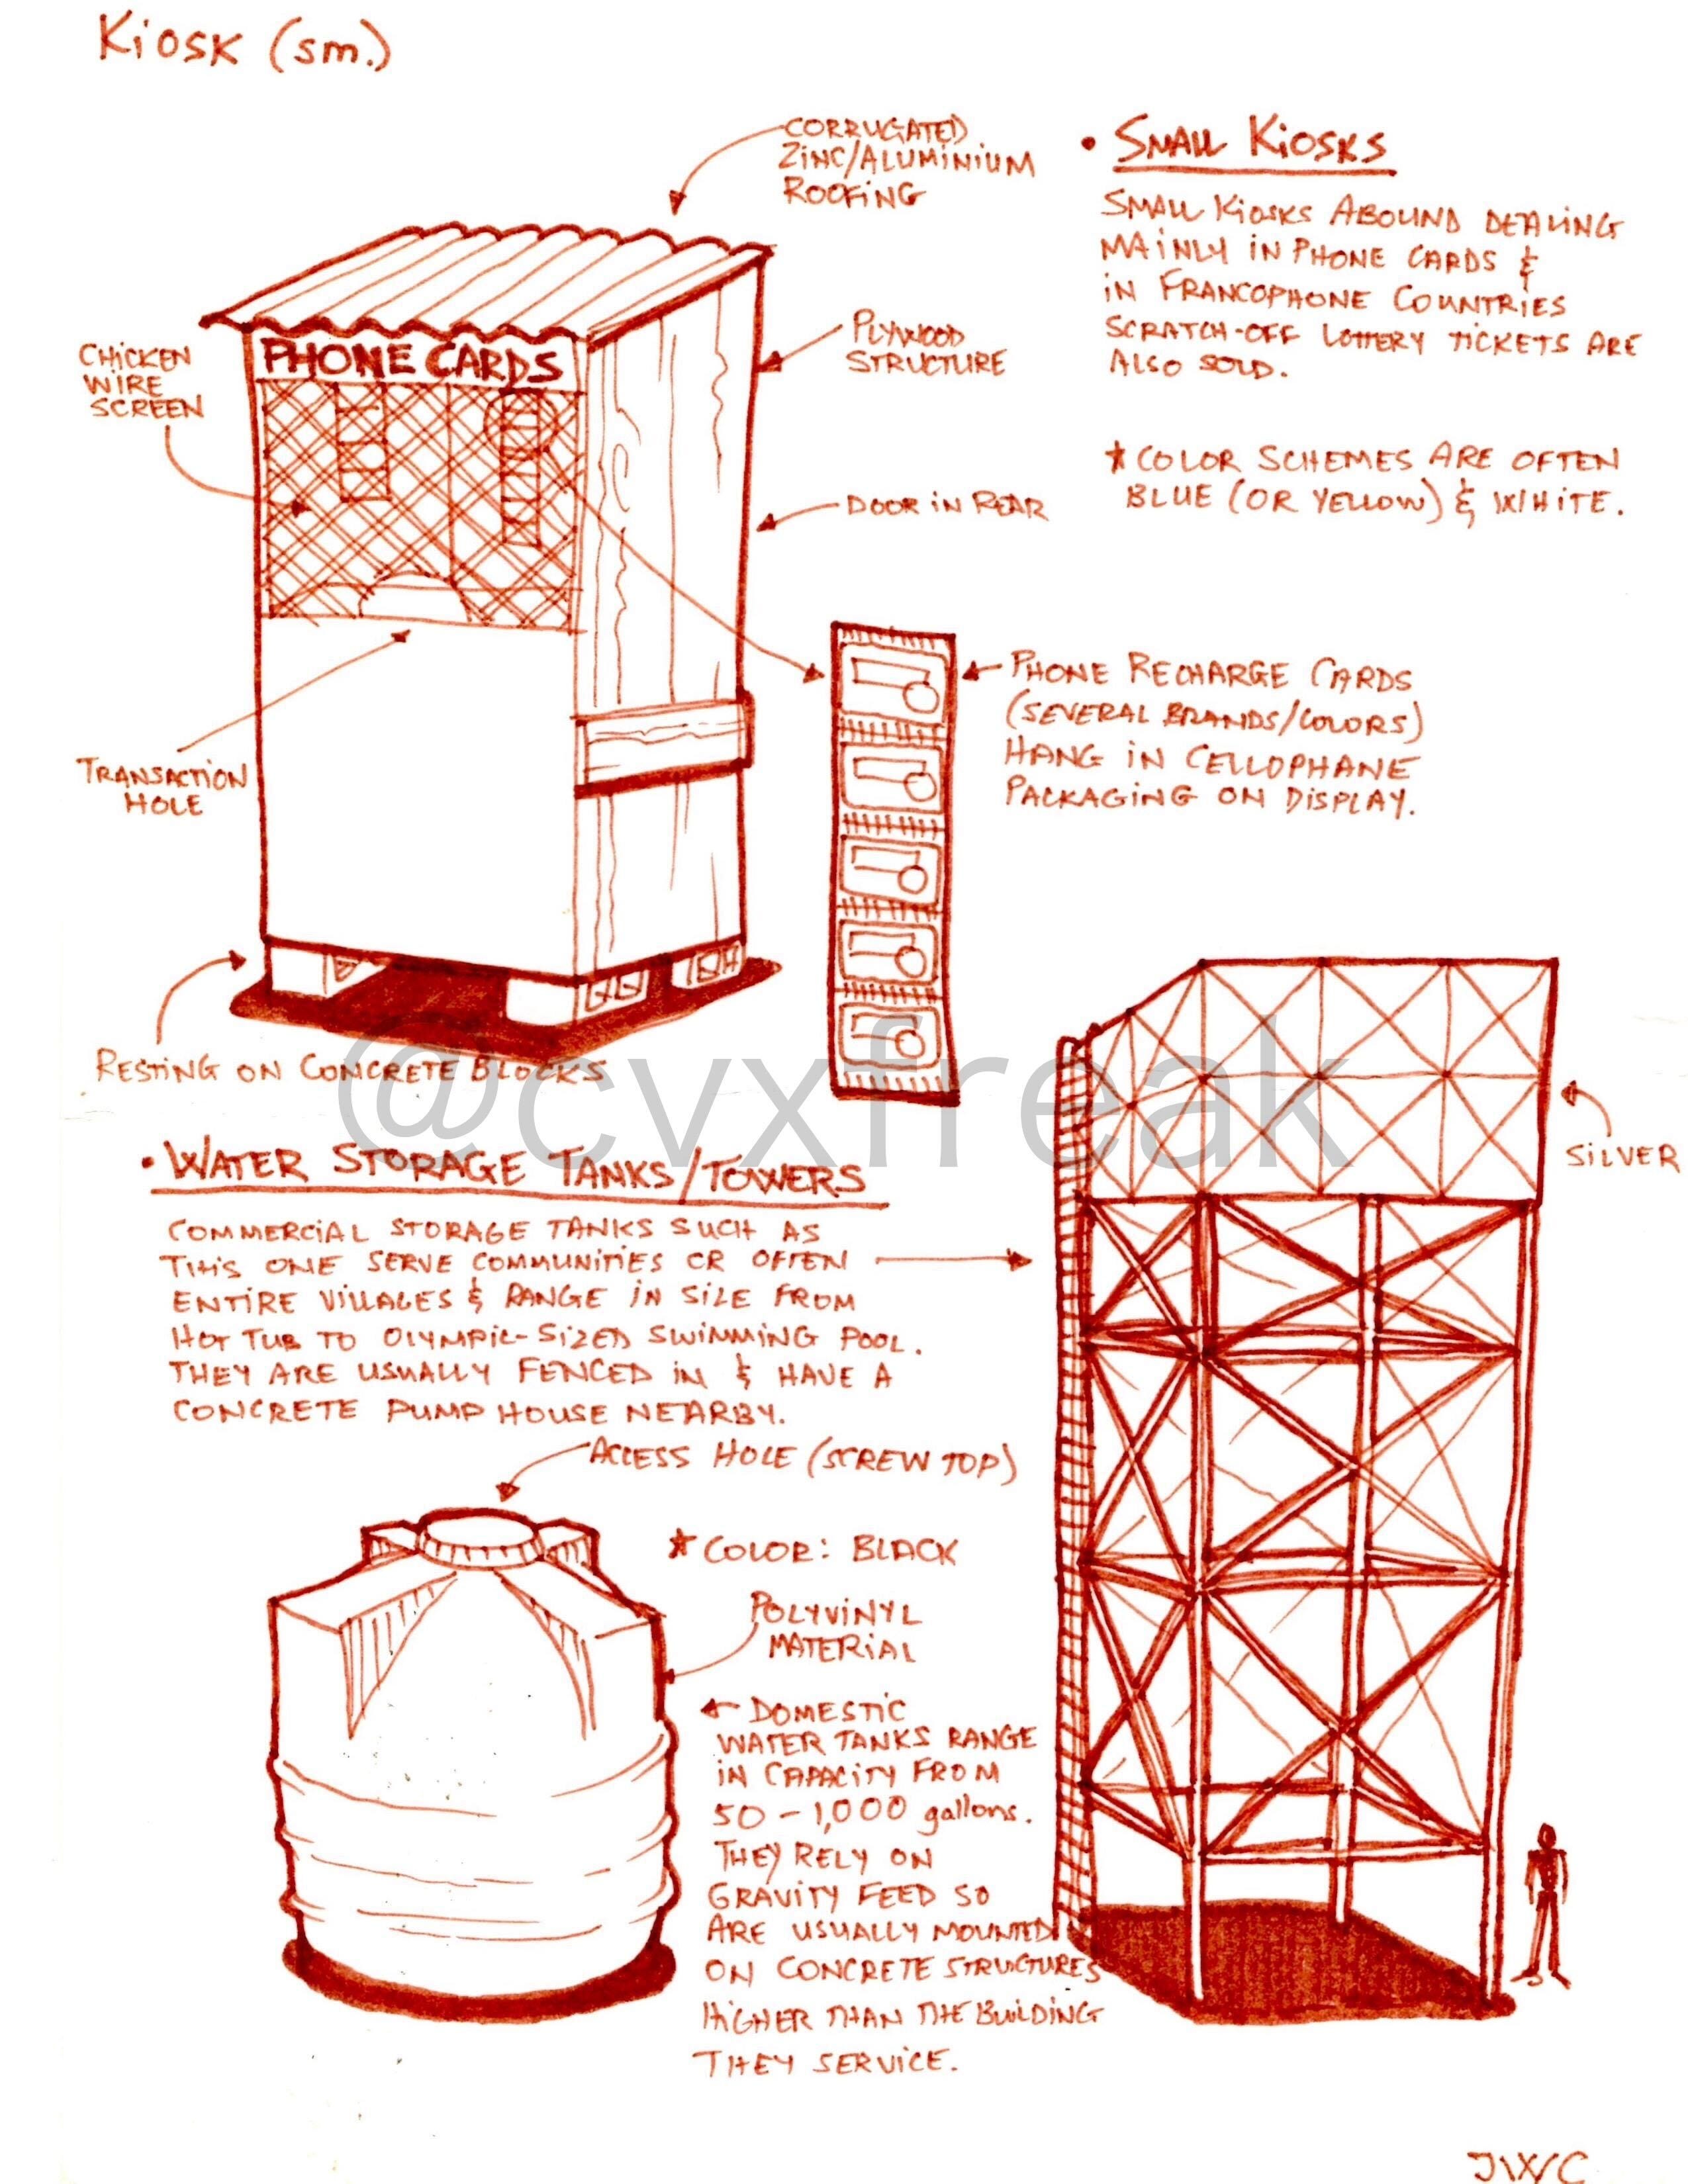 Kiosk (sm.)
CORRUGATED
ZINC/ALUMINIUM
ROOFING
• SMALL KIOSKS
SMALL KIOSKS ABOUND DEALING
MAINLY IN PHONE CARDS &
IN FRANCOPHONE COUNTRIES
SCRATCH-OFF LOTTERY TICKETS ARE
ALSO SOLD.
* COLOR SCHEMES ARE OFTEN
BLUE (OR YELLOW) & WHITE.
CHICKEN
WIRE
SCREEN
PHONE CARDS
PLYWOOD
STRUCTURE
DOOR IN REAR
PHONE RECHARGE CARDS
(SEVERAL BRANDS/COLORS)
HANG IN CELLOPHANE
PACKAGING ON DISPLAY.
TRANSACTION
HOLE
RESTING ON CONCRETE BLOCKS
@cvxfreak
SILVER
• WATER STORAGE TANKS/TOWERS
COMMERCIAL STORAGE TANKS SUCH AS
THIS ONE SERVE COMMUNITIES OR OFTEN
ENTIRE VILLAGES & RANGE IN SIZE FROM
HOT TUB TO OLYMPIC-SIZED SWIMMING POOL.
THEY ARE USUALLY FENCED IN & HAVE A
CONCRETE PUMP HOUSE NEARBY.
ACCESS HOLE (SCREW TOP)
* COLOR: BLACK
POLYVINYL
MATERIAL
DOMESTIC
WATER TANKS RANGE
IN CAPACITY FROM
50 - 1,000 gallons.
THEY RELY ON
GRAVITY FEED SO
ARE USUALLY MOUNTED
ON CONCRETE STRUCTURES
HIGHER THAN THE BUILDING
THEY SERVICE.
JWC